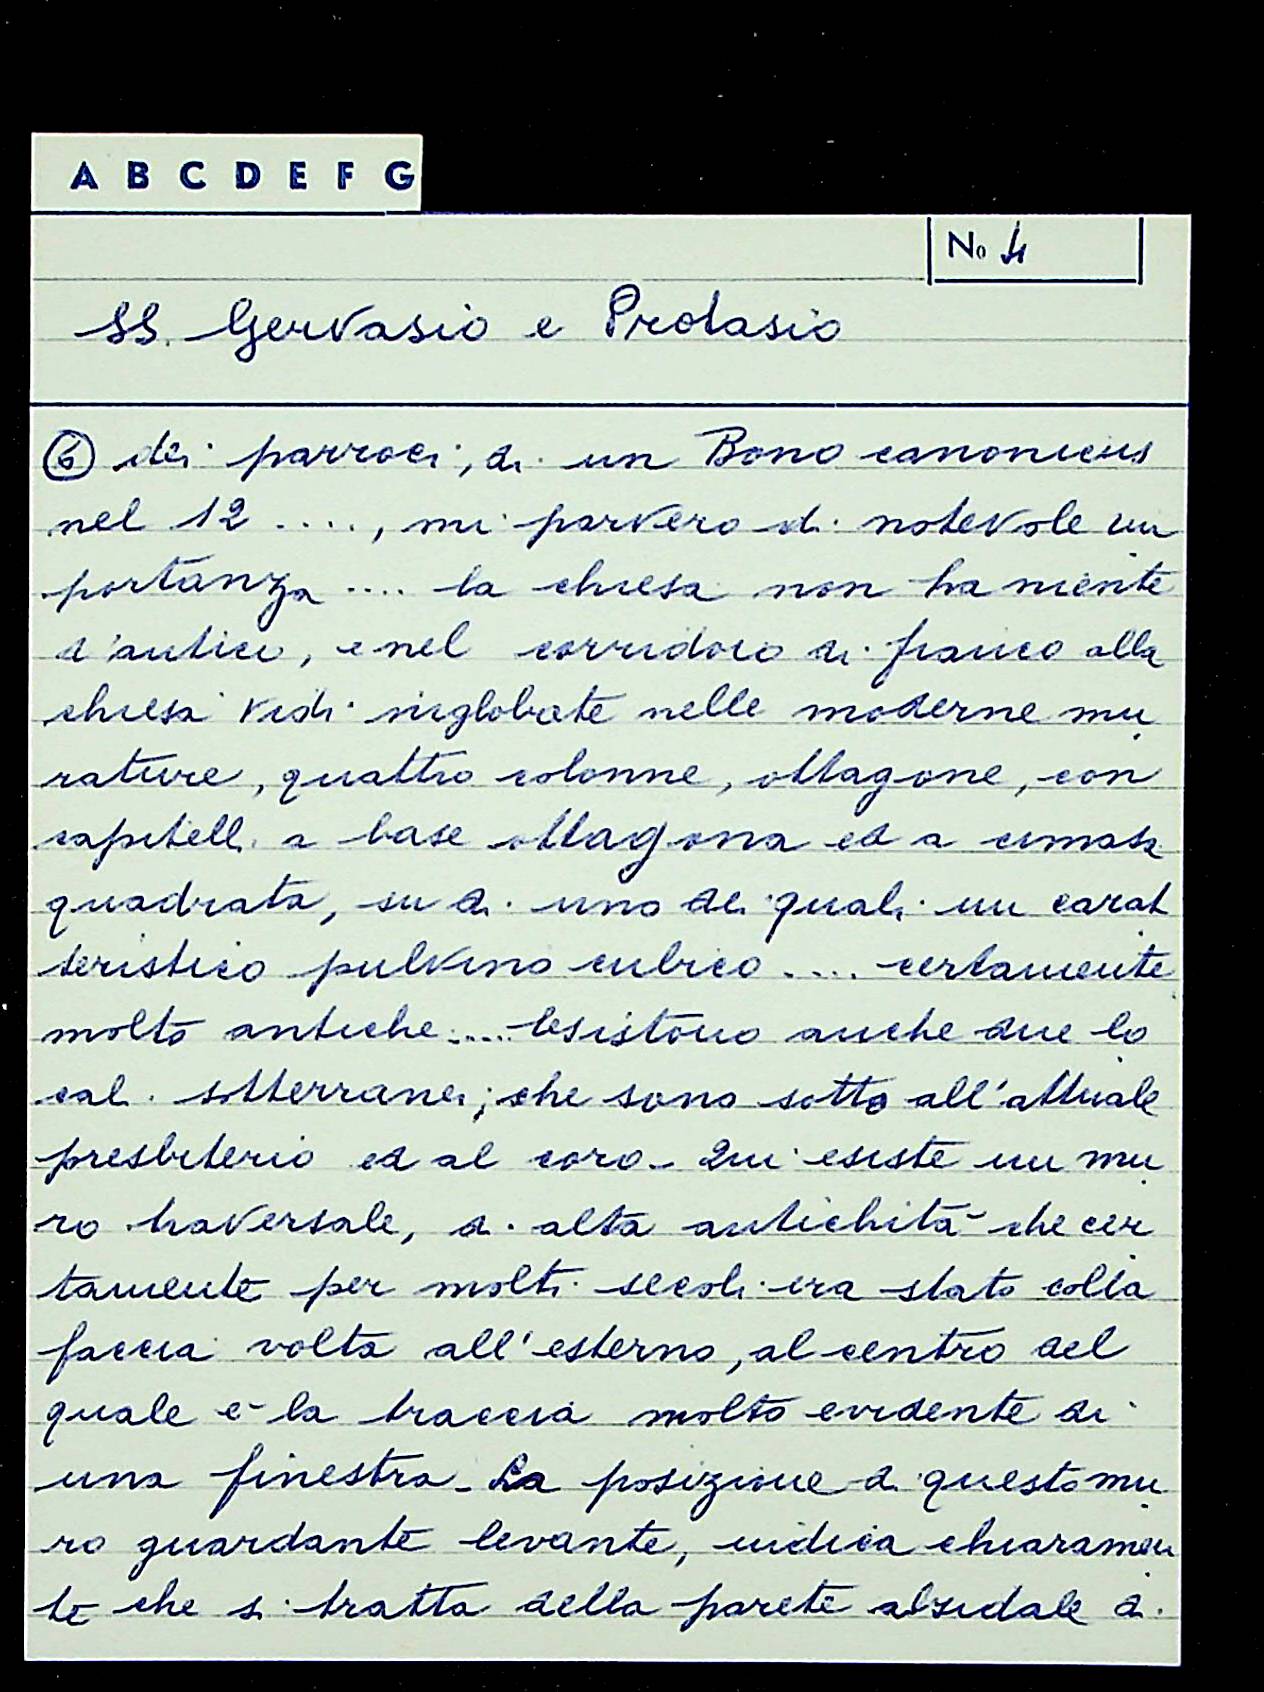 A B C D E F G
No 4
SS. Gervasio e Protasio
⑥ dei parroci, di un Bono canonicus
nel 12 ...., mi parvero di notevole im
portanza .... la chiesa non ha niente
d'antico, e nel corridoio di fianco alla
chiesa vidi inglobate nelle moderne mu
rature, quattro colonne, ottagone, con
capitelli a base ottagona ed a cimasa
quadrata, su di uno dei quali un carat
teristico pulvino cubico .... certamente
molto antiche..... Esistono anche due lo
cali sotterranei; che sono sotto all'attuale
presbiterio ed al coro - Qui esiste un mu
ro traversale, di alta antichità che cer
tamente per molti secoli era stato colla
faccia volta all'esterno, al centro del
quale è la traccia molto evidente di
una finestra - La posizione di questo mu
ro guardante levante, indica chiaramen
te che si tratta della parete absidale di